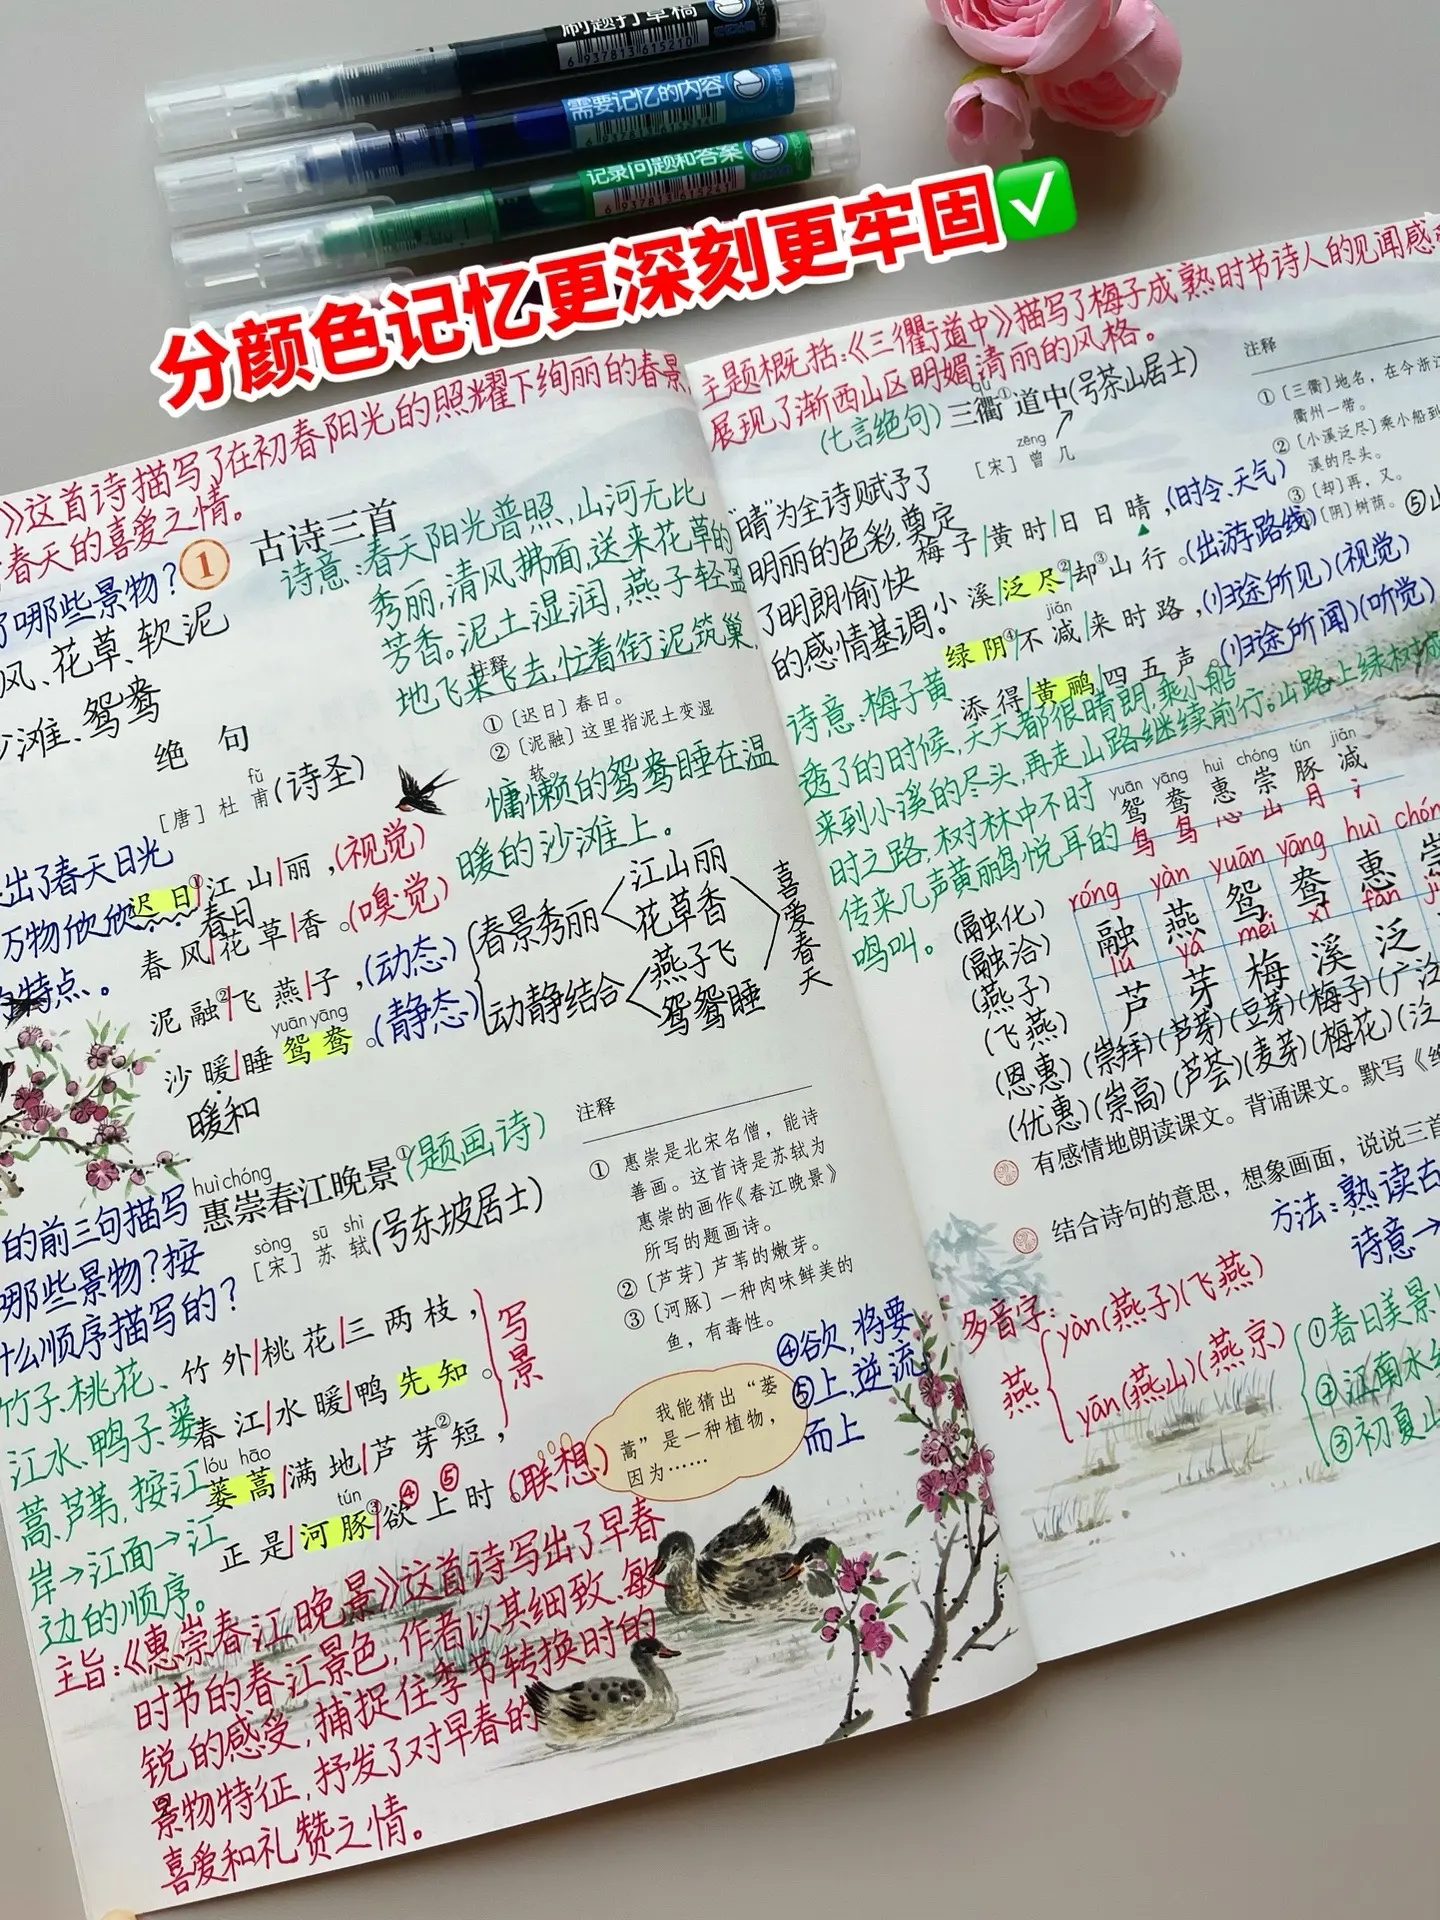 刷题打草稿
6 937813 615210
需要记忆的内容
记录问题和答案
6 937813 615241
分颜色记忆更深刻更牢固✅
》这首诗描写了在初春阳光的照耀下绚丽的春景
春天的喜爱之情。
1
古诗三首
诗意:春天阳光普照,山河无比
秀丽,清风拂面,送来花草的
芳香。泥土湿润,燕子轻盈
地飞来飞去,忙着衔泥筑巢,
慵懒的鸳鸯睡在温
暖的沙滩上。
了哪些景物?
风、花草、软泥
沙滩、鸳鸯
绝句
fǔ
[唐]杜甫(诗圣)
注释
①[迟日]春日。
②[泥融]这里指泥土变湿
软
出了春天日光
万物欣欣
特点。
迟日①江山|丽,(视觉)
春日
春风|花草|香。(嗅觉)
泥融②|飞燕|子,(动态)
yuān yāng
沙暖|睡鸳鸯。(静态)
暖和
春景秀丽
江山丽
花草香
动静结合
燕子飞
鸳鸯睡
喜爱春天
huì chóng
惠崇春江晚景①(题画诗)
sòng sū shì
[宋]苏轼(号东坡居士)
的前三句描写
哪些景物?按
什么顺序描写的?
竹子、桃花、
江水、鸭子、蒌
蒿、芦苇,按江
岸→江面→江
边的顺序。
竹外|桃花|三两枝,
春江|水暖|鸭先知。
写景
lóu hāo
蒌蒿|满地|芦芽②短,
tún ④ ⑤
正是|河豚③|欲上时。(联想)
注释
① 惠崇是北宋名僧,能诗
善画。这首诗是苏轼为
惠崇的画作《春江晚景》
所写的题画诗。
②[芦芽]芦苇的嫩芽。
③[河豚]一种肉味鲜美的
鱼,有毒性。
④欲,将要
⑤上,逆流
而上
我能猜出“蒌
蒿”是一种植物,
因为……
主旨:《惠崇春江晚景》这首诗写出了早春
时节的春江景色,作者以其细致、敏
锐的感受,捕捉住季节转换时的
景物特征,抒发了对早春的
喜爱和礼赞之情。
主题概括:《三衢道中》描写了梅子成熟时节诗人的见闻感
展现了浙西山区明媚清丽的风格。
qú
(七言绝句)三衢①道中(号茶山居士)
zēng
[宋]曾几
注释
①[三衢]地名,在今浙江
衢州一带。
②[小溪泛尽]乘小船到
溪的尽头。
③[却]再,又。
[阴]树荫。⑤
“晴”为全诗赋予了
明丽的色彩,奠定
了明朗愉快
的感情基调。
梅子|黄时|日日晴,(时令、天气)
小溪|泛尽②|却③山行。(出游路线)
jiǎn
绿阴④|不减|来时路,(归途所见)(视觉)
添得|黄鹂|四五声。(归途所闻)(听觉)
诗意:梅子黄
透了的时候,天天都很晴朗,乘小船
来到小溪的尽头,再走山路继续前行。山路上绿树成
时之路,树林中不时
传来几声黄鹂鸟悦耳的
鸣叫。
yuān yāng huì chóng tún jiǎn
鸳鸯惠崇豚减
鸟 鸟 心 山 月 冫
róng yàn yuān yāng huì chón
融燕鸳鸯惠崇
lú yá méi xī fàn
芦芽梅溪泛
(融化)
(融洽)
(燕子)
(飞燕)
(恩惠)(崇拜)(芦芽)(豆芽)(梅子)(广泛
(优惠)(崇高)(芦荟)(麦芽)(梅花)(泛
有感情地朗读课文。背诵课文。默写《绝
结合诗句的意思,想象画面,说说三首
方法:熟读古
诗意→
多音字:
燕
yàn(燕子)(飞燕)
yān(燕山)(燕京)
①春日美景
②江南水
③初夏山